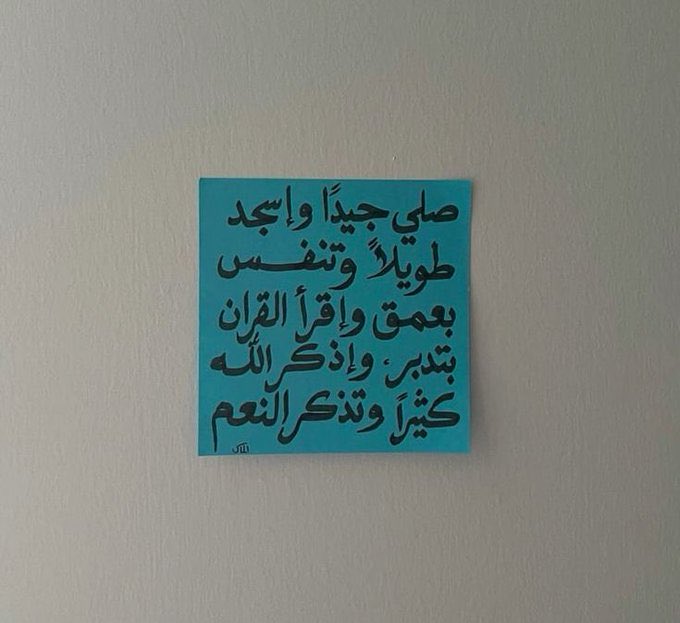 صلي جيدًا وإسجد
طويلاً وتنفس
بعمق وإقرأ القران
بتدبر، وإذكر الله
كثيراً وتذكر النعم